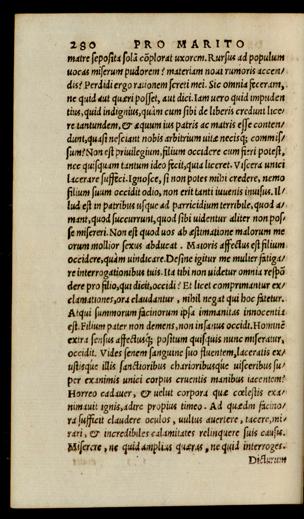 280 PRO MARITO
matre seposita solā cōplorat uxorem. Rursus ad populum
uocas miserum pudorem? materiam noui rumoris accen/
dis? Perdidi ergo rationem secreti mei. Sic omnia feceram,
ne quid aut quæri posset, aut dici. Iam uero quid impuden
tius, quid indignius, quàm cum sibi de liberis credunt lice/
re tantundem, & æquum ius patris ac matris esse conten/
dunt, quasi nesciant nobis arbitrium uitæ necisq; commis/
sum? Non est priuilegium, filium occidere cum fieri potest,
nec quisquam tantum ideo fecit, quia liceret. Viscera unici
lacerare suffeci. Ignosce, si non potes mihi credere, nemo
filium suum occidit odio, non erit tanti iuuenis inuisus. Il/
lud est in patribus usque ad parricidium terribile, quod a/
mant, quod succurrunt, quod sibi uidentur aliter non pos/
se misereri. Non est quod uos ab æstimatione malorum me
orum mollior sexus abducat. Maioris affectus est filium
occidere, quàm uindicare. Desine igitur me mulier fatiga/
re interrogationibus tuis. Ita tibi non uidetur omnia respō
dere pro filio, qui dicit, occidi? Et licet comprimantur ex/
clamationes, ora claudantur, nihil negat qui hoc fatetur.
Atqui summorum facinorum ipsa immanitas innocentia
est. Filium pater non demens, non insanus occidi. Hominē
extra sensus affectusq; positum quisquis nunc miseratur,
occidit. Vides senem sanguine suo fluentem, laceratis ex/
ustisque illis sanctioribus charioribusque uisceribus su/
per exanimis unici corpus cruentis manibus iacentem?
Horreo cadauer, & uelut corpora quæ cœlestis exa/
nimauit ignis, adire propius timeo. Ad quædam facino/
ra sufficit claudere oculos, uultus auertere, tacere, mi/
rari, & incredibiles calamitates relinquere suis causis.
Miserere, ne quid amplius quæras, ne quid interroges.
Dicturum